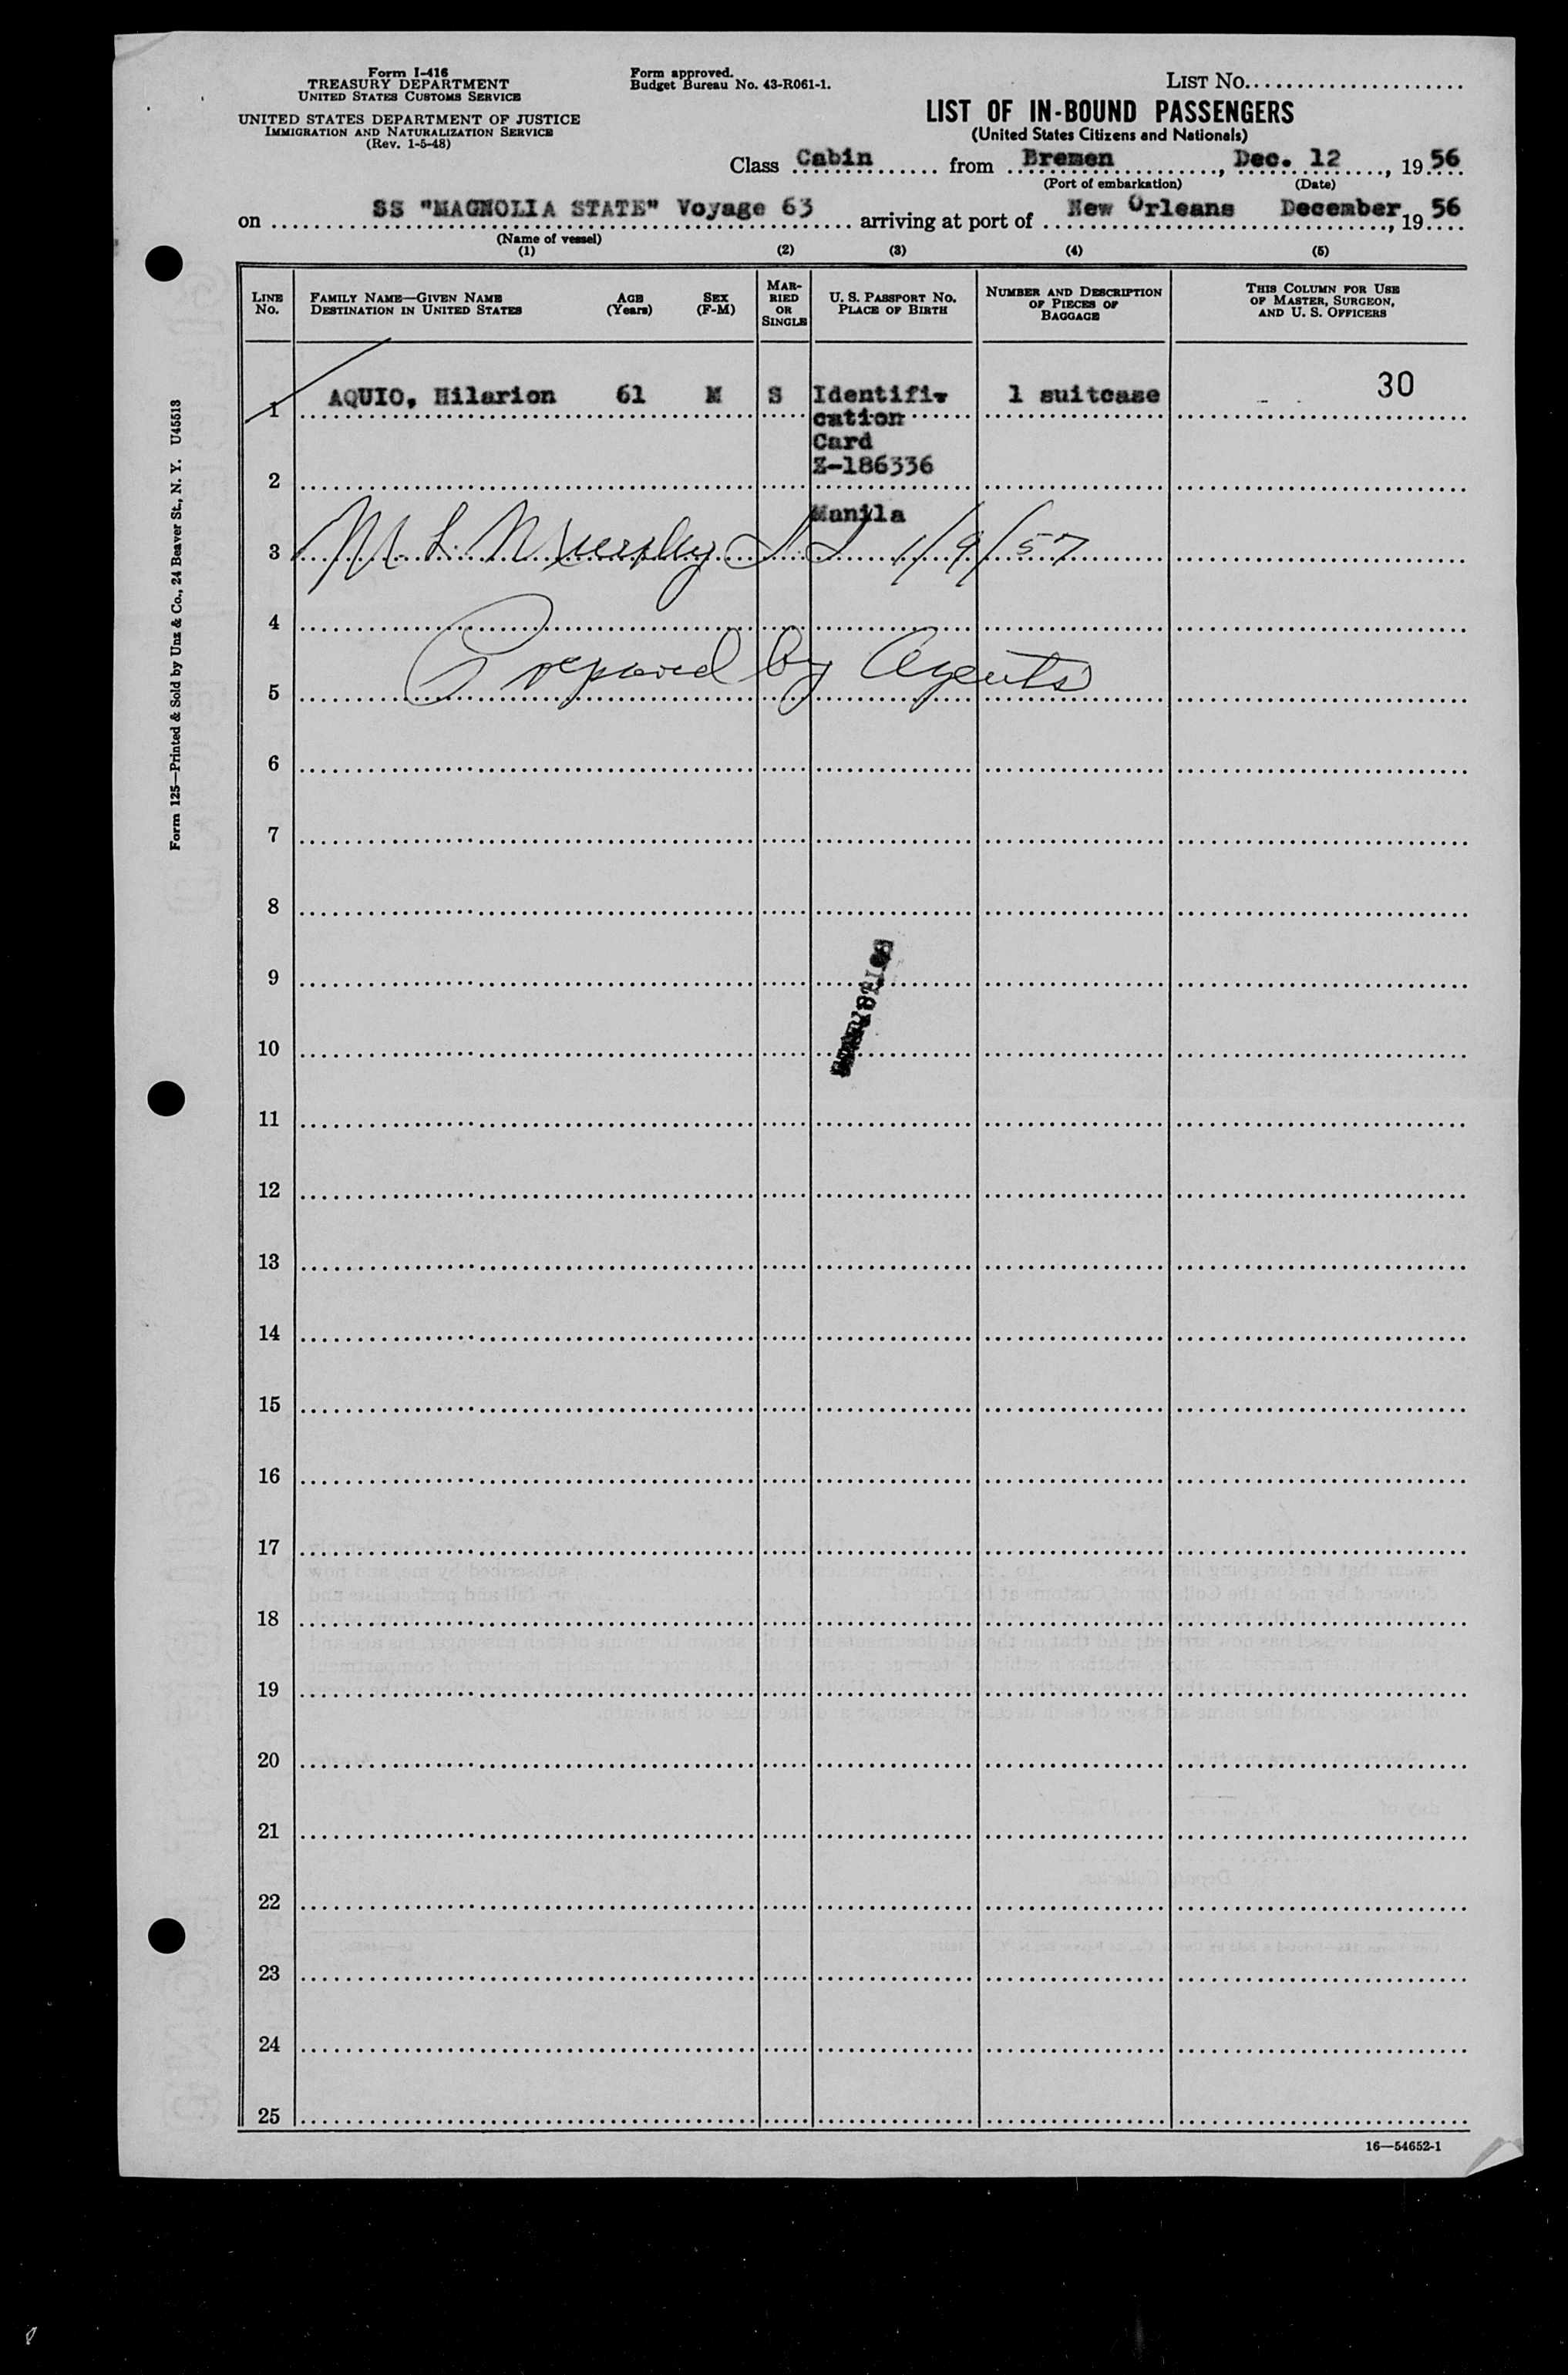 Form I-416
TREASURY DEPARTMENT
UNITED STATES CUSTOMS SERVICE
UNITED STATES DEPARTMENT OF JUSTICE
IMMIGRATION AND NATURALIZATION SERVICE
(Rev. 1-5-48)
Form approved.
Budget Bureau No. 43-R061-1.
LIST No.
LIST OF IN-BOUND PASSENGERS
(United States Citizens and Nationals)
Class Cabin from Bremen, Dec. 12, 1956
(Port of embarkation) (Date)
on SS "MAGNOLIA STATE" Voyage 63 arriving at port of New Orleans December, 1956
(Name of vessel)
(1) (2) (3) (4) (5)
LINE No.
FAMILY NAME—GIVEN NAME
DESTINATION IN UNITED STATES
AGE (Years)
SEX (F-M)
MARRIED OR SINGLE
U. S. PASSPORT NO.
PLACE OF BIRTH
NUMBER AND DESCRIPTION OF PIECES OF BAGGAGE
THIS COLUMN FOR USE OF MASTER, SURGEON, AND U. S. OFFICERS
1 AQUIO, Hilarion 61 M S Identifi- 1 suitcase 30
cation
Card
2 Z-186336
Manila
3 M. L. Murphy 1/9/57
4
Prepared by Agents
5
6
7
8
9
10
11
12
13
14
15
16
17
18
19
20
21
22
23
24
25
16—54652-1
Form 125—Printed & Sold by Unz & Co., 24 Beaver St., N. Y. U45513